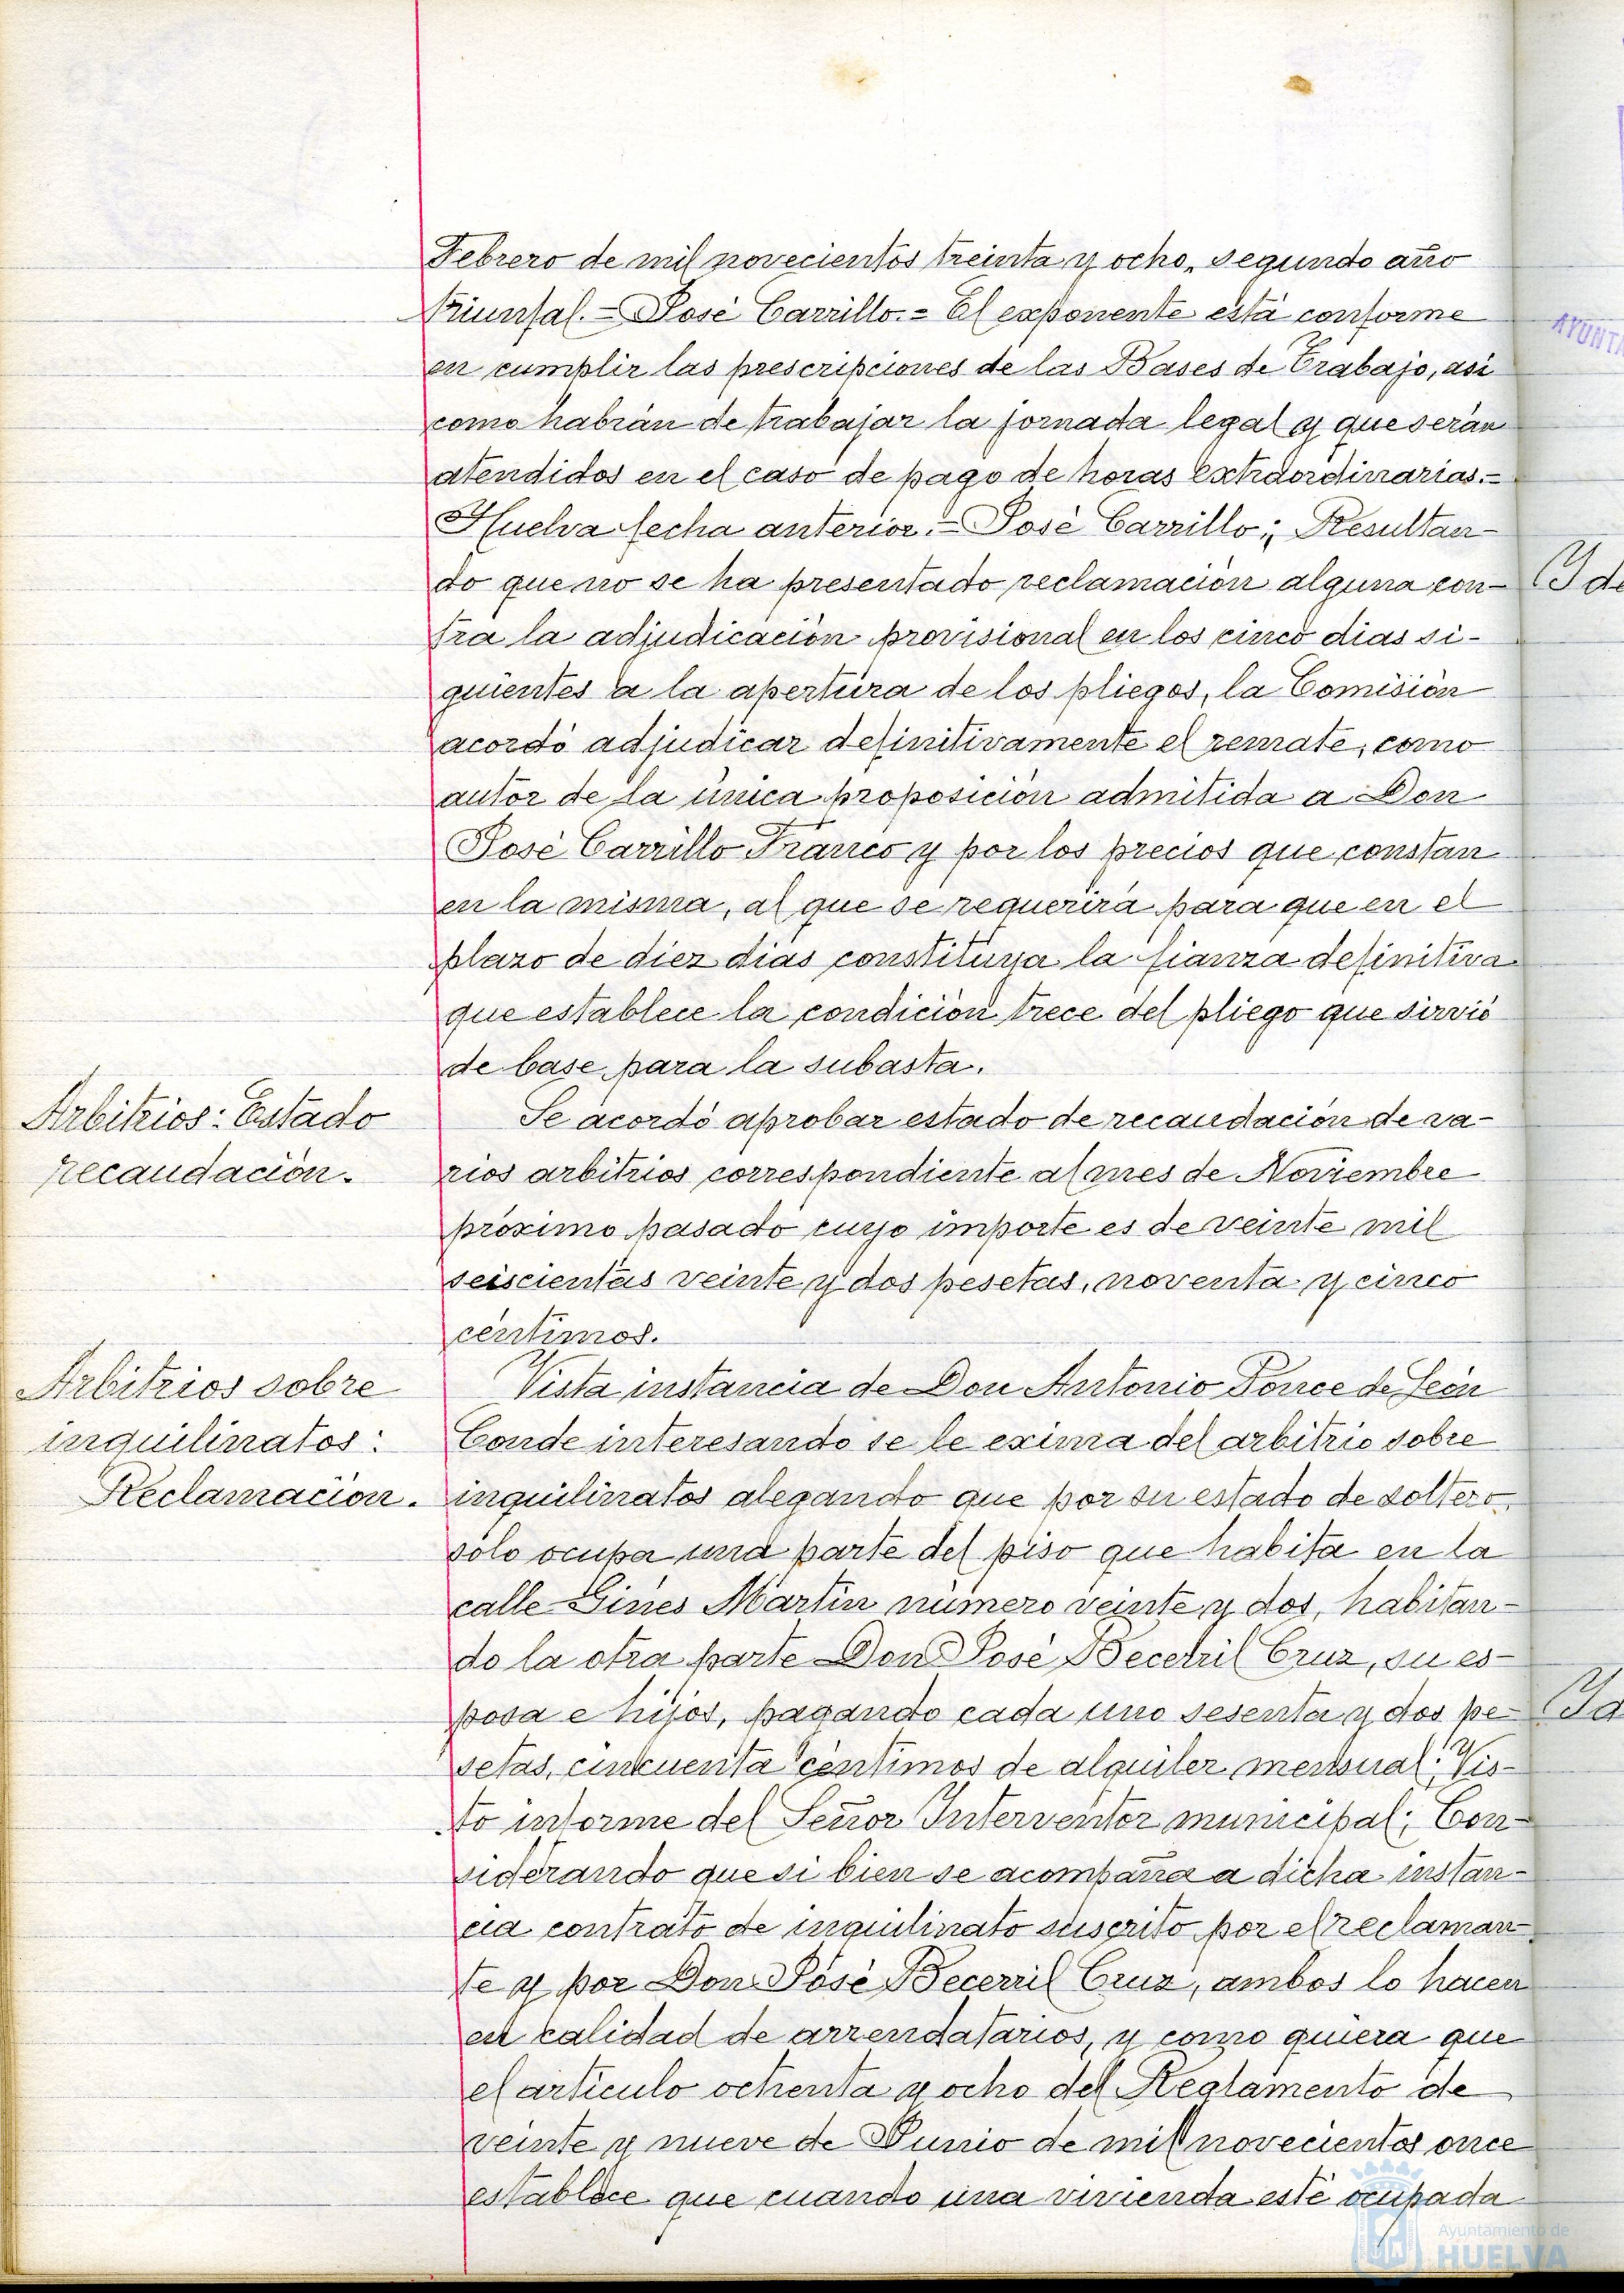 Febrero de mil novecientos treinta y ocho, segundo año
triunfal.= José Carrillo.= El exponente está conforme
en cumplir las prescripciones de las Bases de Trabajo, asi
como habrán de trabajar la jornada legal y que serán
atendidos en el caso de pago de horas extraordinarias.=
Huelva fecha anterior.= José Carrillo; Resultan-
do que no se ha presentado reclamación alguna con-
tra la adjudicación provisional en los cinco dias si-
guientes a la apertura de los pliegos, la Comisión
acordó adjudicar definitivamente el remate, como
autor de la única proposición admitida a Don
José Carrillo Franco y por los precios que constan
en la misma, al que se requerirá para que en el
plazo de diez dias constituya la fianza definitiva
que establece la condición trece del pliego que sirvió
de base para la subasta.
Arbitrios: Estado
recaudación.
Se acordó aprobar estado de recaudación de va-
rios arbitrios correspondiente al mes de Noviembre
próximo pasado cuyo importe es de veinte mil
seiscientas veinte y dos pesetas, noventa y cinco
céntimos.
Arbitrios sobre
inquilinatos:
Reclamación.
Vista instancia de Don Antonio Ponce de León
Conde interesando se le exima del arbitrio sobre
inquilinatos alegando que por su estado de soltero,
sólo ocupa una parte del piso que habita en la
calle Ginés Martin número veinte y dos, habitan-
do la otra parte Don José Becerril Cruz, su es-
posa e hijos, pagando cada uno sesenta y dos pe-
setas, cincuenta céntimos de alquiler mensual; Vis-
to informe del Señor Interventor municipal; Con-
siderando que si bien se acompaña a dicha instan-
cia contrato de inquilinato suscrito por el reclaman-
te y por Don José Becerril Cruz, ambos lo hacen
en calidad de arrendatarios, y como quiera que
el articulo ochenta y ocho del Reglamento de
veinte y nueve de Junio de mil novecientos once
establece que cuando una vivienda esté ocupada
Ayuntamiento de
HUELVA